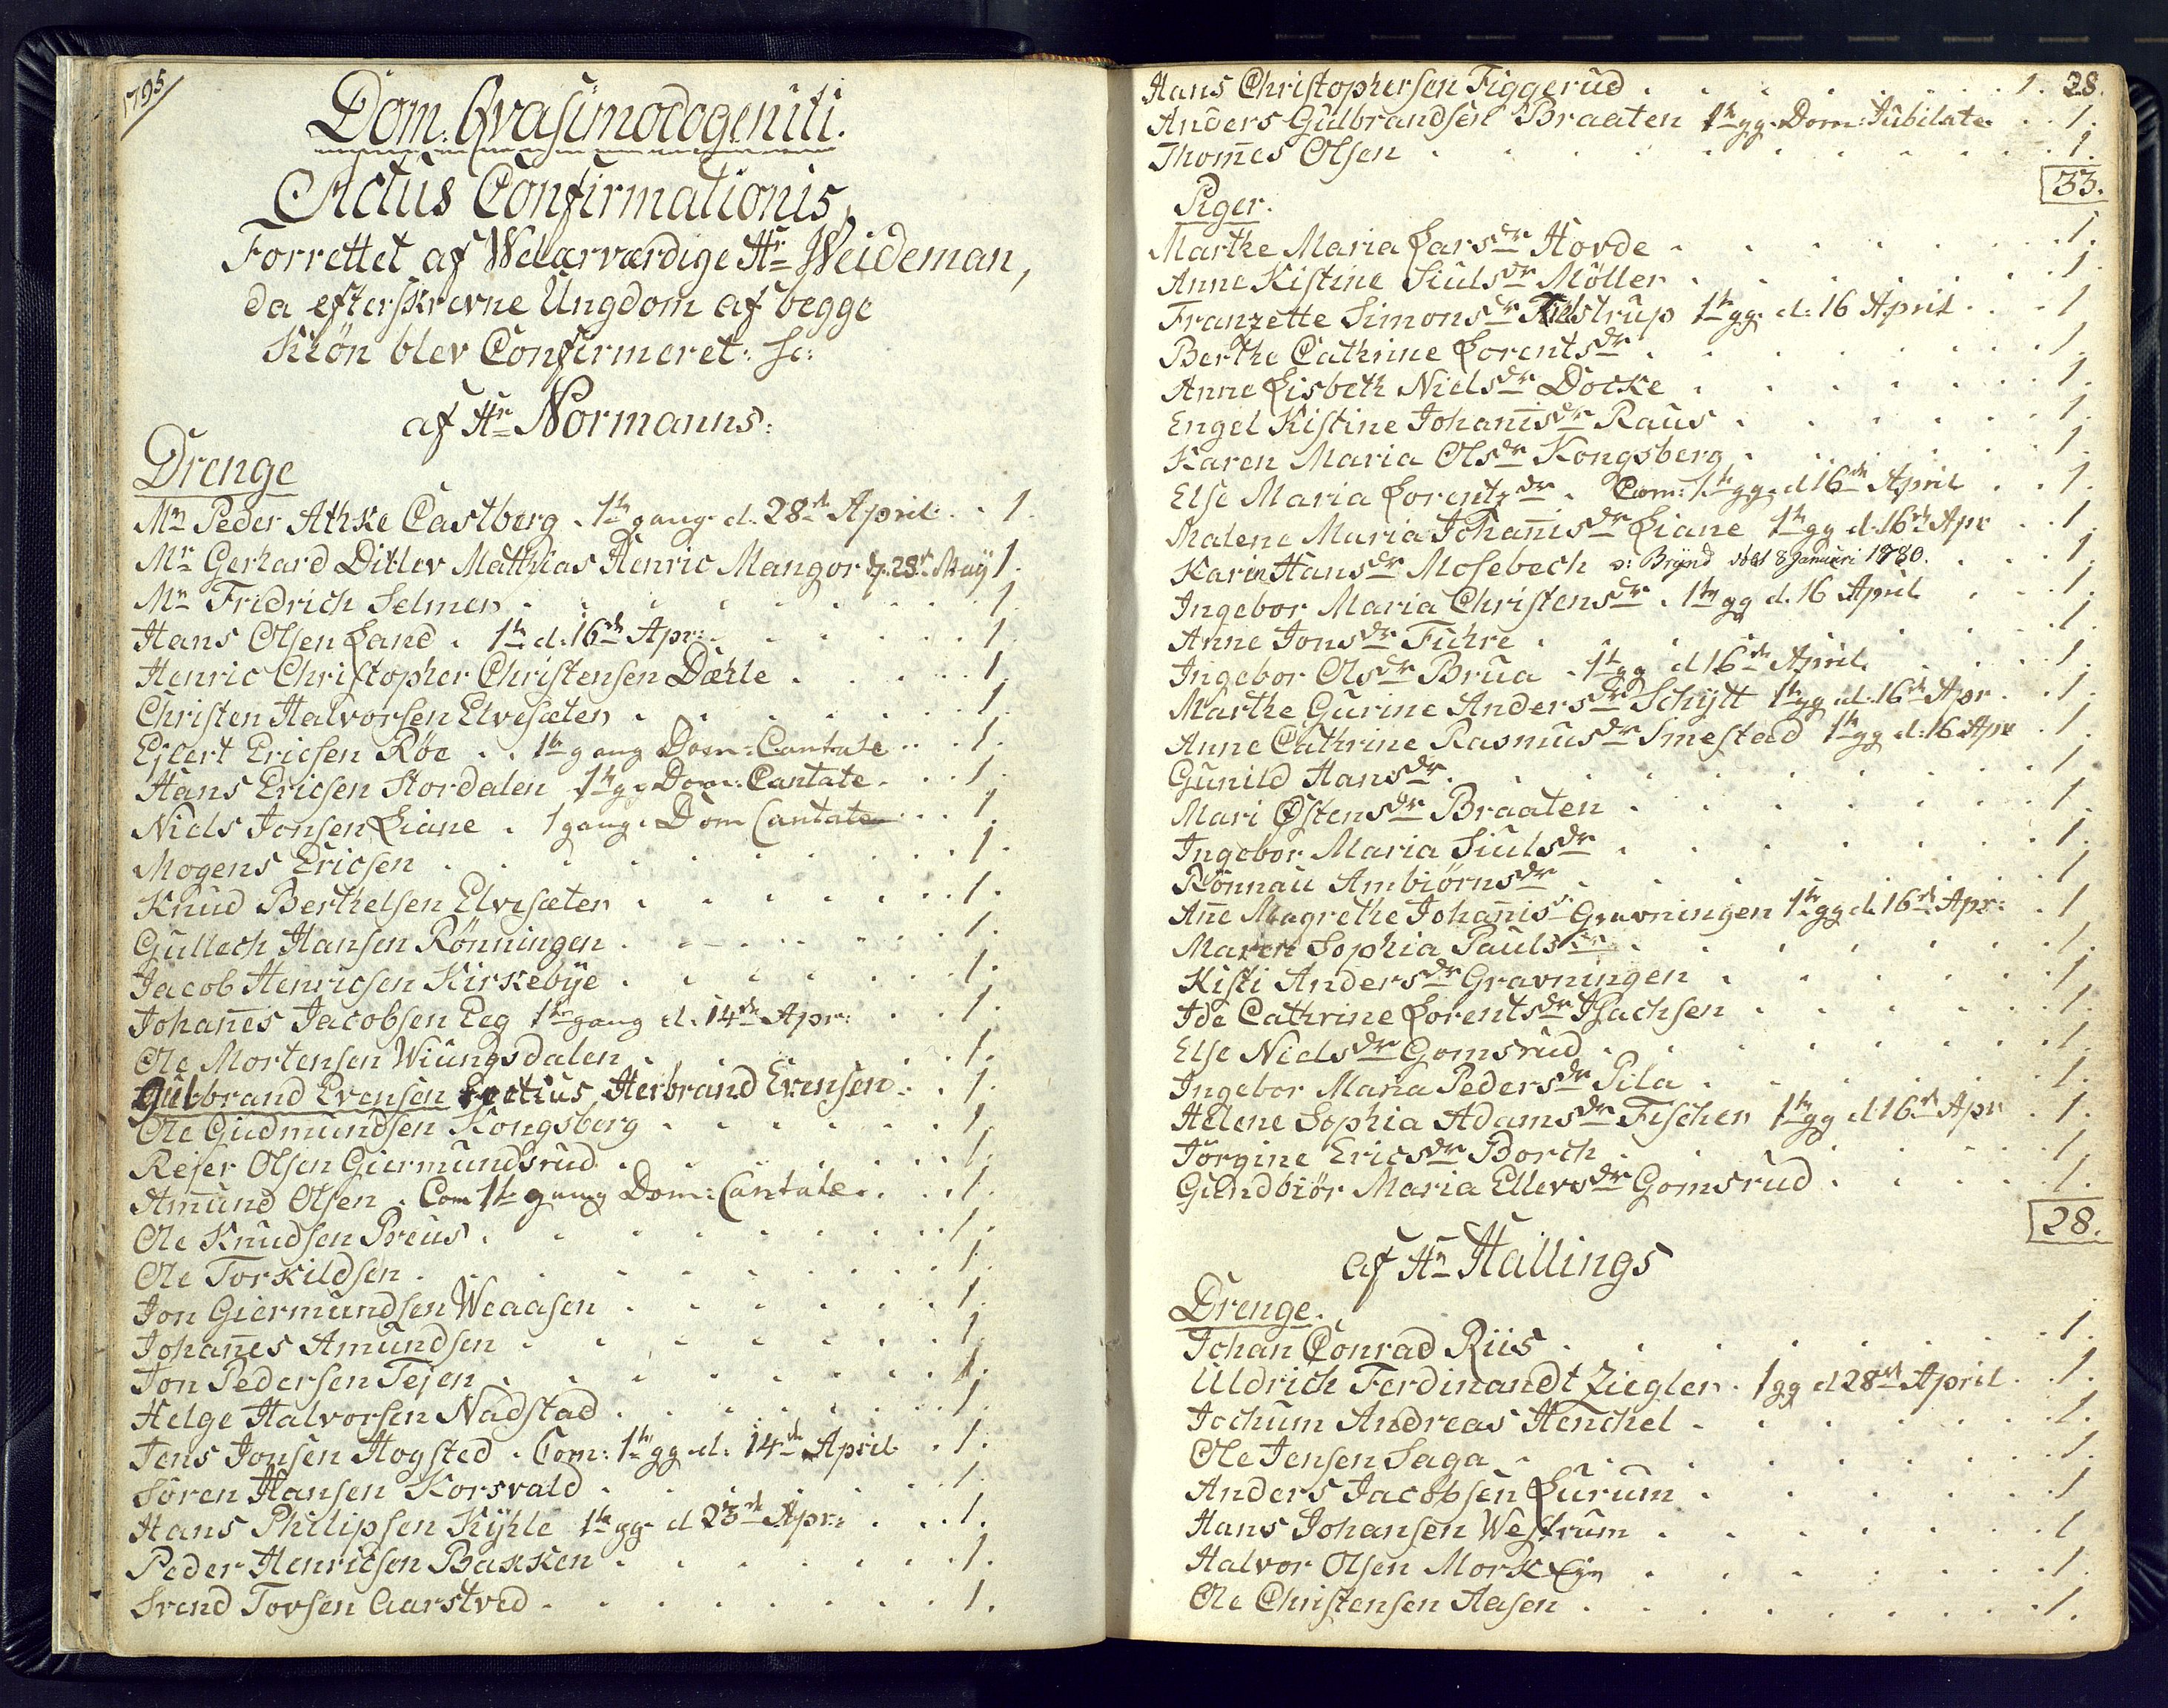 1795
Dom: Qvasimodogeniti.
Actus Confirmationis,
Forrettet af Welærværdige Hr Weideman,
da efterskrevne Ungdom af begge
Kiön blev Confirmeret: sc:
af Hr Normanns:
Drenge
Mr Peder Athke Castberg . 1te gang d. 28de April . . 1.
Mr Gerhard Ditlev Matthias Henric Mangor d. 28de Maÿ 1.
Mr Fridrich Selmer . . . . . . . 1.
Hans Olsen Land . 1te d. 16de Apr: . . . . . 1.
Henric Christopher Christensen Dæhle . . . . . 1.
Christen Halvorsen Elvesæter . . . . . . . 1.
Ejlert Ericsen Röe . . 1te gang Dom: Cantate . . . 1.
Hans Ericsen Stordalen 1te gg Dom: Cantate . . . 1.
Niels Jonsen Liane . 1 gang Dom Cantate . . . 1.
Mogens Ericsen . . . . . . . . . 1.
Knud Berthelsen Elvesæter . . . . . . . 1.
Gullech Hansen Rönningen . . . . . . . 1.
Jacob Henricsen Kirkebÿe . . . . . . . 1.
Johañes Jacobsen Eeg 1te gang d. 14de Apr: . . . 1.
Ole Mortensen Wiungsdalen . . . . . . 1.
Gulbrand Evensen rectius Herbrand Evensen . . 1.
Ole Gudmundsen Kongsberg . . . . . . 1.
Rejer Olsen Giermundsrud . . . . . . . 1.
Amund Olsen . Com 1te gang Dom: Cantate . . . 1.
Ole Knudsen Preus . . . . . . . . 1.
Ole Torkildsen . . . . . . . . . 1.
Jon Giermundsen Weaasen . . . . . . . 1.
Johañes Amundsen . . . . . . . . 1.
Jon Pedersen Tejen . . . . . . . . 1.
Helge Halvorsen Nadstad . . . . . . . 1.
Jens Jonsen Hogsted . Com: 1te gg d. 14de April . . 1.
Sören Hansen Korsvald . . . . . . . 1.
Hans Philipsen Kÿhle 1te gg d 23de Apr: . . . 1.
Peder Henricsen Bakken . . . . . . . 1.
Svend Tovsen Aarstved . . . . . . . . 1.
Hans Christophersen Figgerud . . . . . . 1. 28.
Anders Gulbrandsen Braaten 1te gg Dom: Jubilate . . 1.
Thom̃es Olsen . . . . . . . . . . 1.
33.
Piger.
Marthe Maria Larsdr Hovde . . . . . . . 1.
Anne Kistine Siulsdr Möller . . . . . . . 1.
Franzette Simonsdr Tielstrup 1te gg. d. 16 April . . 1
Berthe Cathrine Lorentsdr . . . . . . . 1.
Anne Lisbeth Nielsdr Docke . . . . . . . 1.
Engel Kistine Johañisdr Raus . . . . . . 1.
Karen Maria Olsdr Kongsberg . . . . . . 1.
Else Maria Lorentzdr . Com: 1te gg. d 16de April . . 1.
Malene Maria Johañisdr Liane 1te gg d. 16de Apr . . 1.
Karin Hansdr Mosebech . . . 1
Ingebor Maria Christensdr . 1te gg d. 16 April . . 1.
Anne Jonsdr Fuhre . . . . . . . 1.
Ingebor Olsdr Brua . 1te gg d 16de April . . . 1.
Marthe Gurine Andersdr Schÿtt 1te gg d. 16de Apr . . 1.
Anne Cathrine Rasmusdr Smestad 1te gg d: 16 Apr . 1.
Gunild Hansdr . . . . . . . . . 1.
Mari Östensdr Braaten . . . . . . . 1.
Ingebor Maria Siulsdr . . . . . . . 1.
Rönnau Ambiörnsdr . . . . . . . 1
Añe Magrethe Johañisdr Gravningen 1te gg d. 16de Apr: . 1
Maren Sophia Paulsdr . . . . . . . 1.
Kisti Andersdr Gravningen . . . . . . 1.
Ide Cathrine Lorentsdr Isachsen . . . . . . 1.
Else Nielsdr Gomsrud . . . . . . . 1.
Ingebor Maria Pedersdr Pila . . . . . . 1.
Helene Sophia Adamsdr Fischer 1te gg d. 16de Apr . 1.
Jörgine Ericsdr Borch . . . . . . . 1.
Gundbiör Maria Ellevsdr Gomsrud . . . . . 1.
28.
af Hr Hallings
Drenge.
Johan Conrad Riis . . . . . . . . 1.
Uldrich Ferdinandt Ziegler . 1 gg d 28de April . . 1.
Jochum Andreas Henchel . . . . . . . 1.
Ole Jensen Saga . . . . . . . . . 1.
Anders Jacobsen Lurum . . . . . . . 1
Hans Johansen Westrum . . . . . . . 1
Halvor Olsen Mork . . . . . . . 1.
Ole Christensen Aasen . . . . . . . . 1.